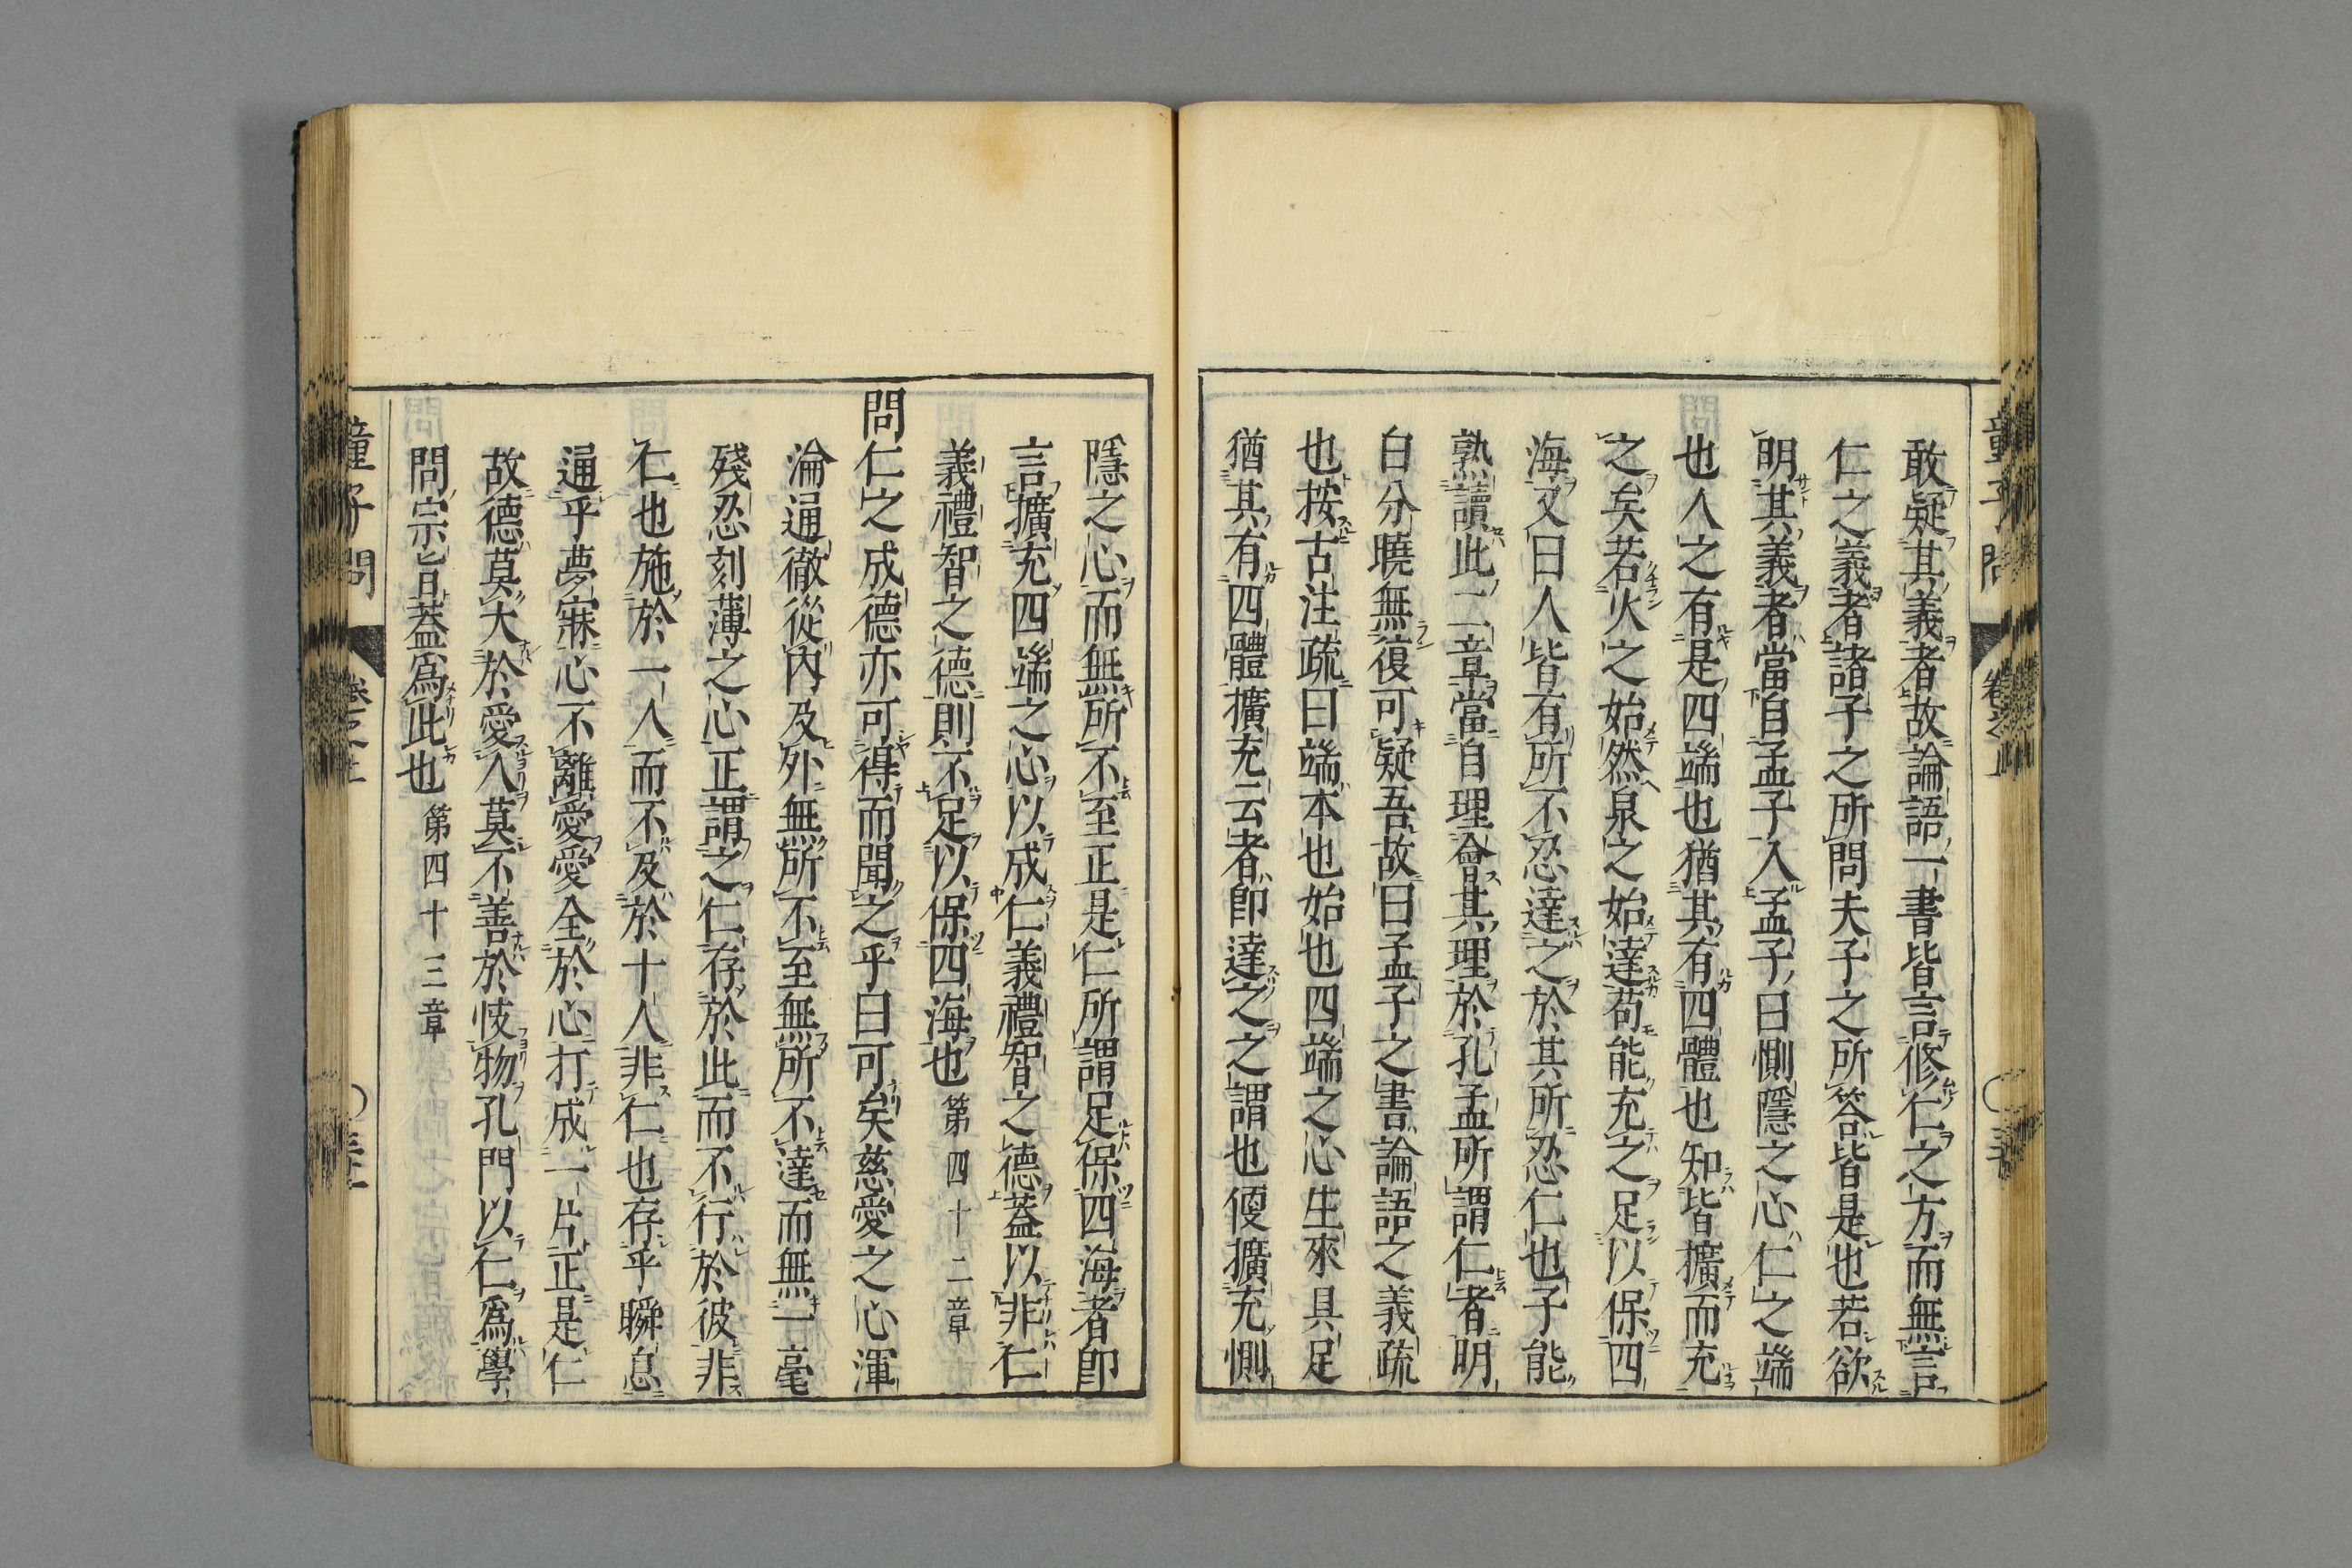 敢疑其義者故論語一書皆言修仁之方而無言
仁之義者諸子之所問夫子之所答皆是也若欲
明其義者當自孟子入孟子曰惻隱之心仁之端
也人之有是四端也猶其有四體也知皆擴而充
之矣若火之始然泉之始達苟能充之足以保四
海又曰人皆有所不忍達之於其所忍仁也子能
熟讀此二章當自理會其理於孔孟所謂仁者明
白分曉無復可疑吾故曰孟子之書論語之義疏
也按古注疏曰端本也始也四端之心生來具足
猶其有四體擴充云者即達之之謂也便擴充惻
隱之心而無所不至正是仁所謂足保四海者即
言擴充四端之心以成仁義禮智之德蓋以非仁
義禮智之德則不足以保四海也第四十二章
問仁之成德亦可得而聞之乎曰可矣慈愛之心渾
淪通徹從內及外無所不至無所不達而無一毫
殘忍刻薄之心正謂之仁存於此而不行於彼非
仁也施於一人而不及於十人非仁也存乎瞬息
通乎夢寐心不離愛愛全於心打成一片正是仁
故德莫大於愛人莫不善於忮物孔門以仁爲學
問宗旨蓋爲此也第四十三章
童子問 卷之上